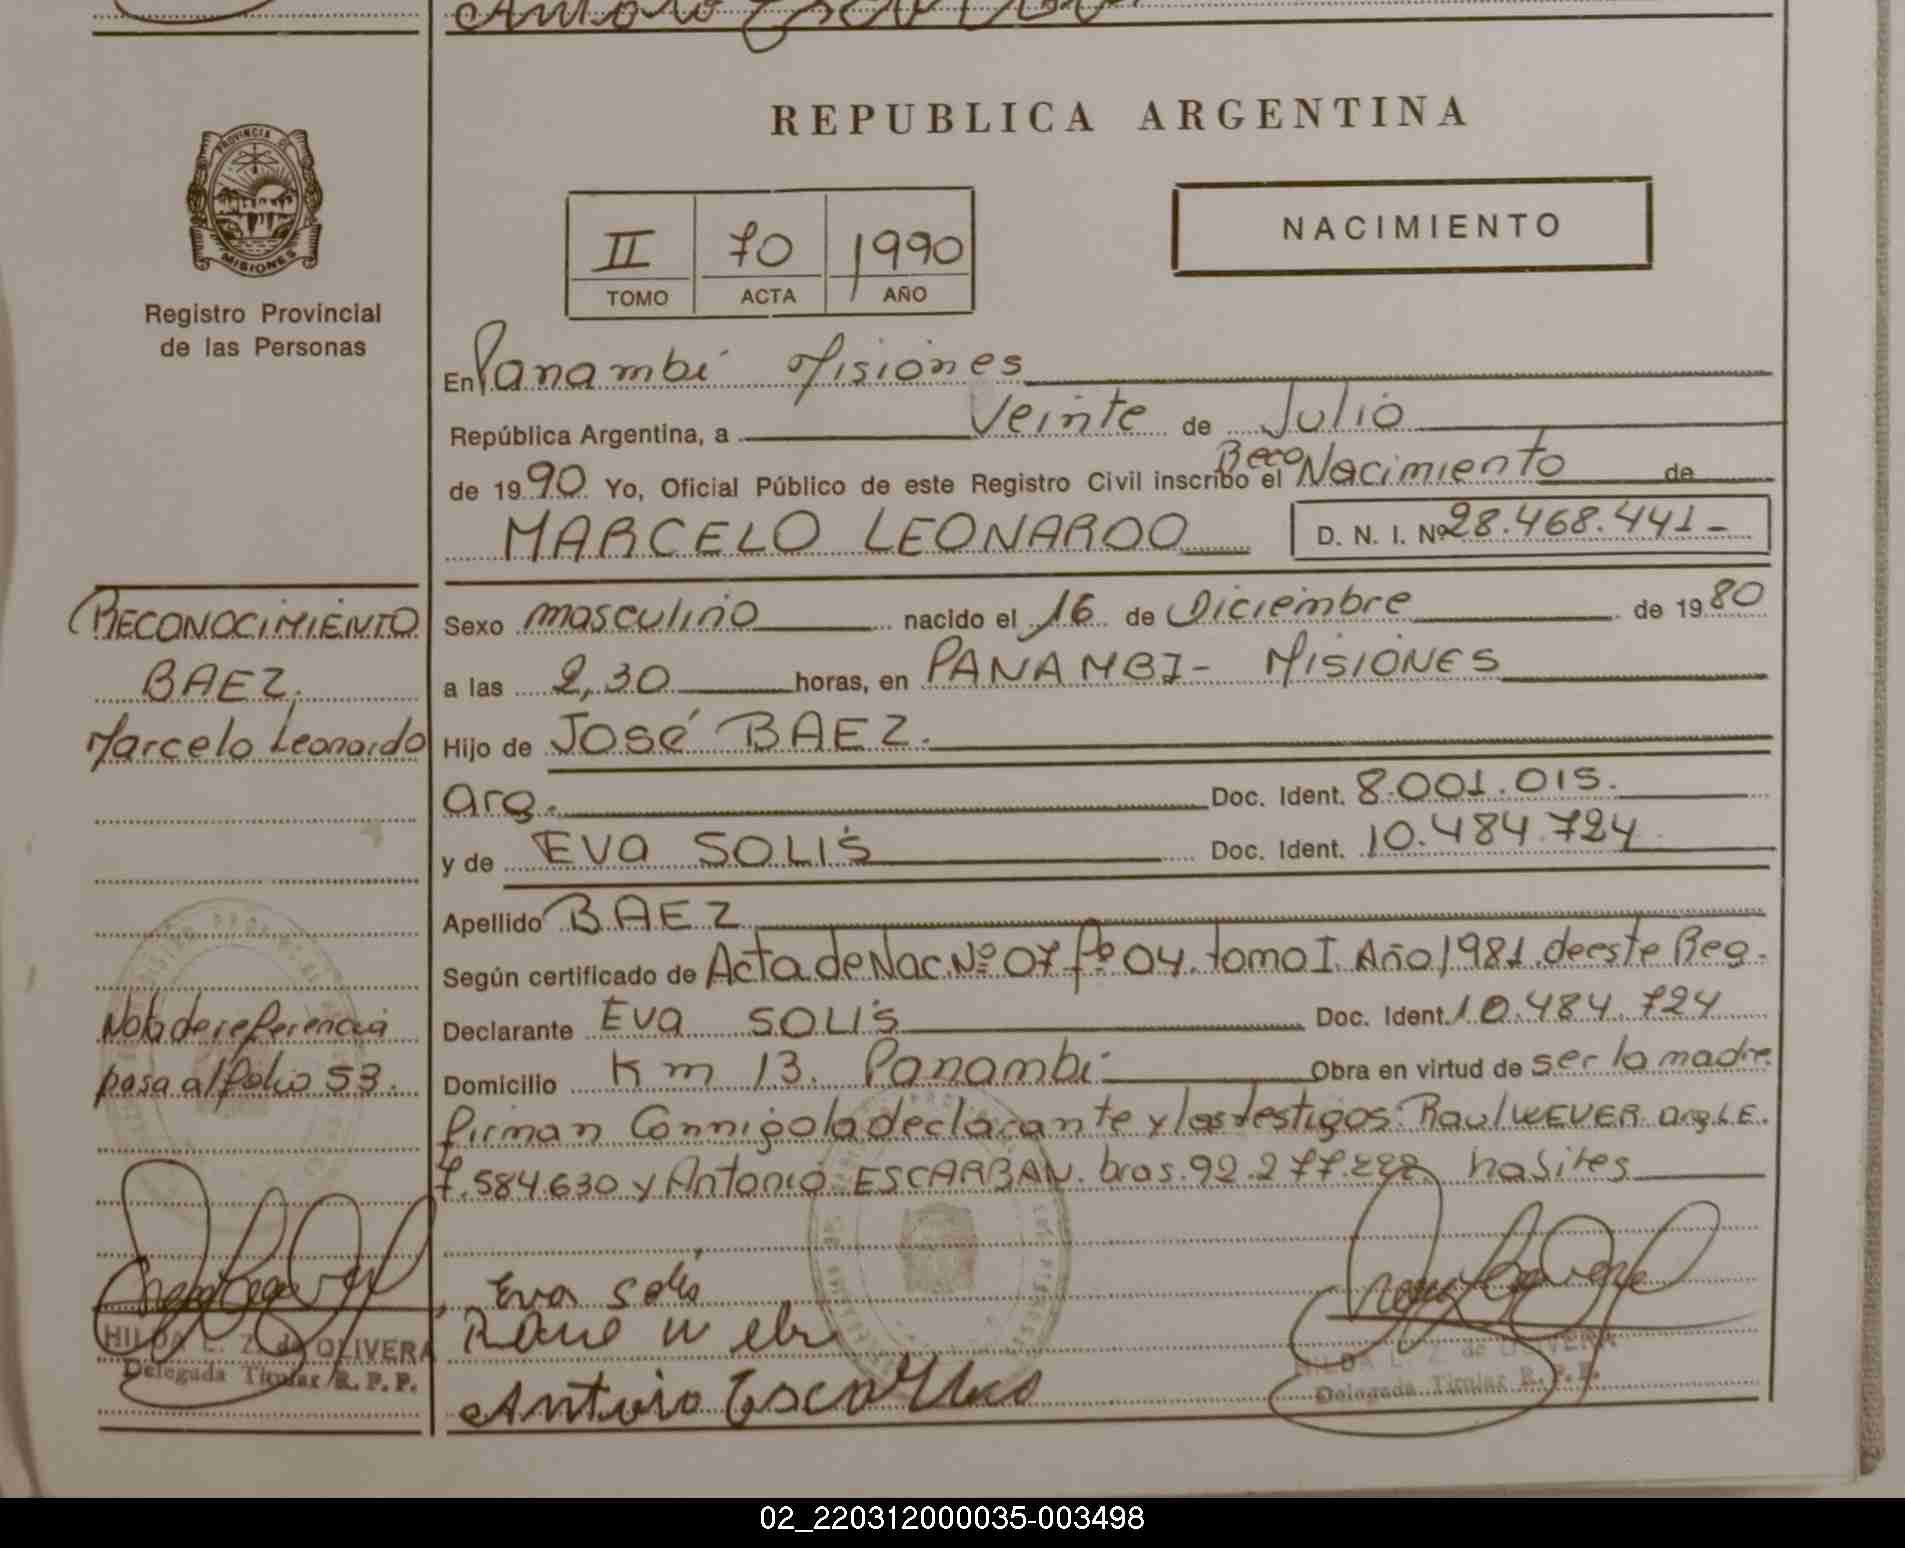 PROVINCIA DE
MISIONES
Registro Provincial
de las Personas
REPUBLICA ARGENTINA
II 70 1990
TOMO ACTA AÑO
NACIMIENTO
En Panambí Misiones
República Argentina, a Veinte de Julio
de 1990 Yo, Oficial Público de este Registro Civil inscribo el Reco Nacimiento de
MARCELO LEONARDO D. N. I. Nº 28.468.441-
RECONOCIMIENTO
BAEZ,
Marcelo Leonardo
Sexo masculino nacido el 16 de Diciembre de 1980
a las 2,30 horas, en PANAMBI- MISIONES
Hijo de José BAEZ.
arg. Doc. Ident. 8.001.015.
y de Eva SOLIS Doc. Ident. 10.484.724
Apellido BAEZ
Según certificado de Acta de Nac. Nº 07 Fº 04. tomo I. Año 1981. de este Reg.
Declarante Eva SOLIS Doc. Ident. 10.484.724
Domicilio Km 13. Panambí Obra en virtud de ser la madre.
firman Conmigo la declarante y los testigos: Raul WEVER. arg. L.E.
7.584.630 y Antonio ESCARBAN. bras. 92.277. habiles
Nota de referencia
pasa al folio 53.
Eva Solis
HILDA L. Z. de OLIVERA
Delegada Titular R. P. P.
HILDA L. Z. de OLIVERA
Delegada Titular R. P. P.
02_220312000035-003498